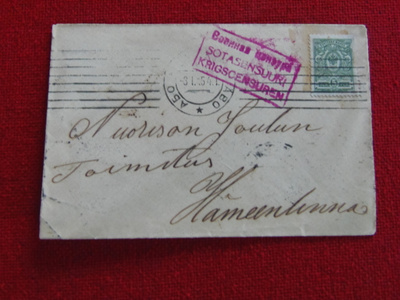 Военная цензура
SOTASENSUURI
KRIGSCENSUREN
ÅBO
ÅBO
Nuorison Joulun
Toimitus
Hämeenlinna